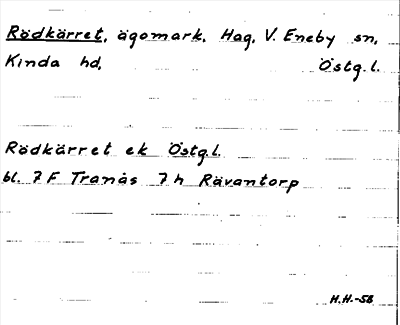 Rödkärret, ägomark, Hag, V. Eneby sn,
Kinda hd, Östg.l.
Rödkärret ek Östg.l.
bl. 7 F Tranås 7 h Rävantorp
H.H.-58